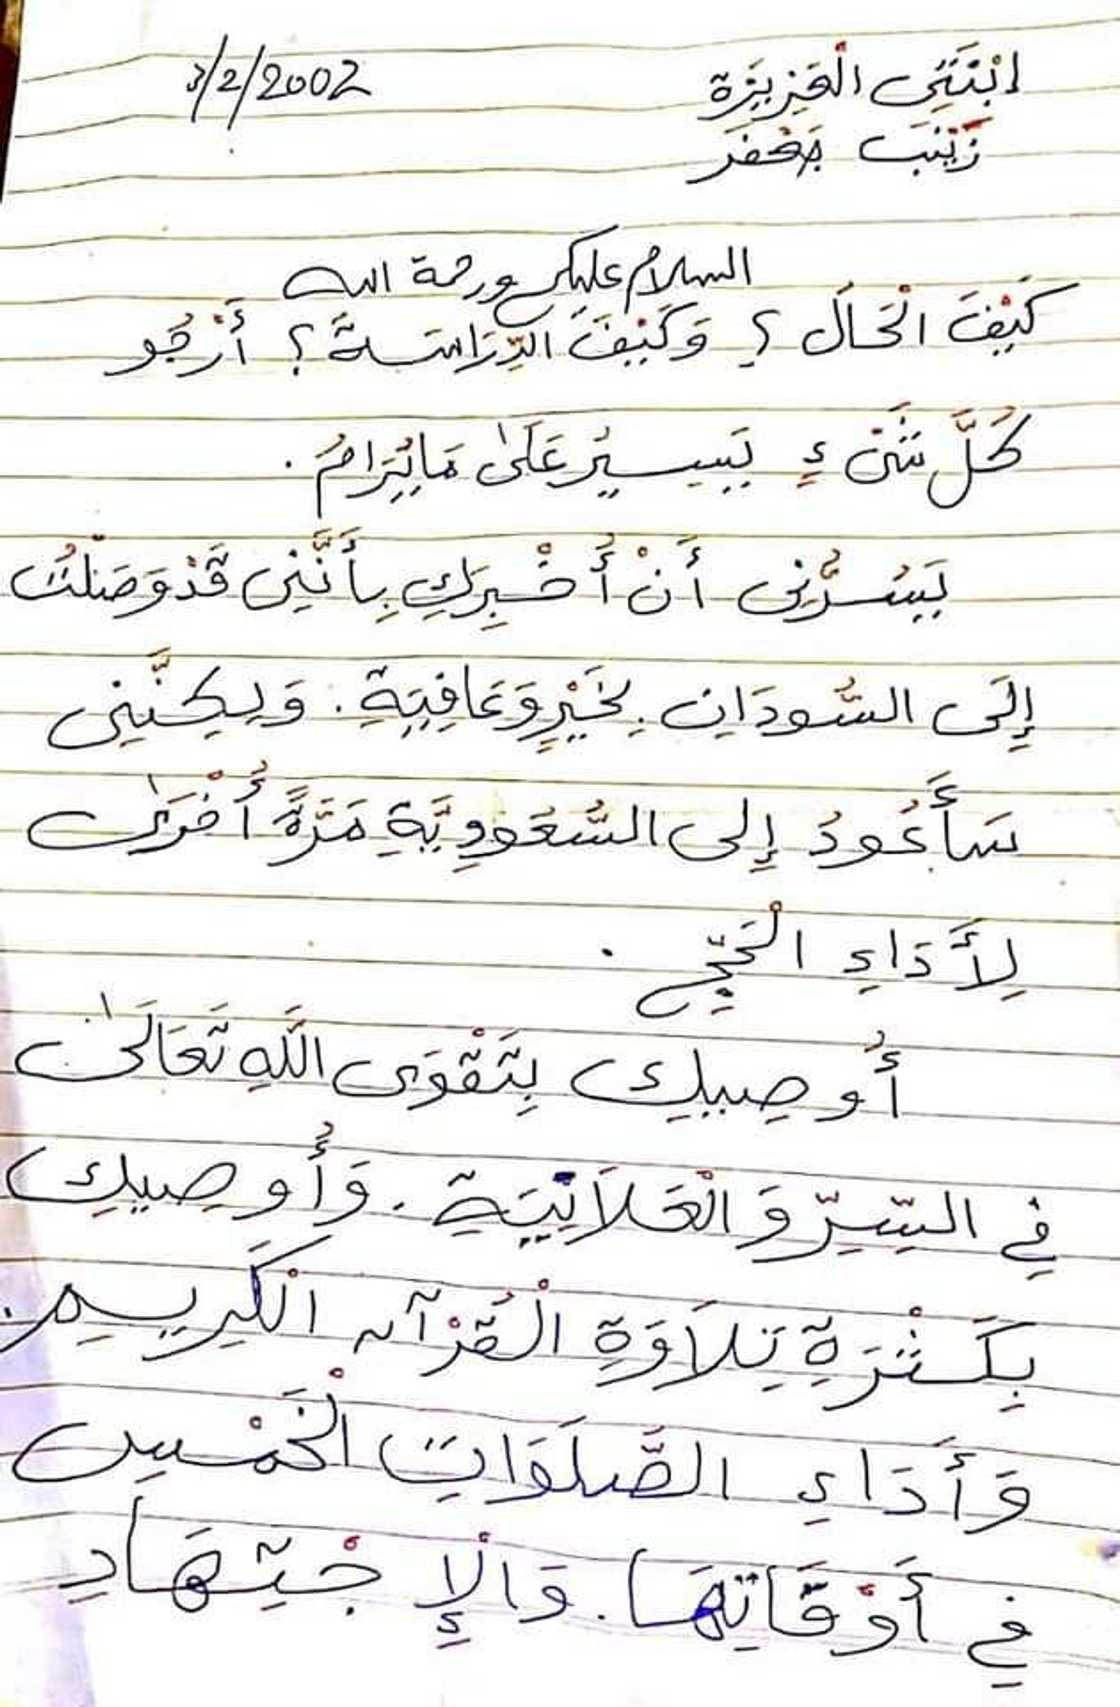 ابْنَتِي الْعَزِيزَة 3/2/2002
زَيْنَب جَعْفَر
السلام عليكم ورحمة الله
كَيْفَ الْحَالَ؟ وَكَيْفَ الدِّرَاسَةَ؟ أَرْجُو
كُلَّ شَيْءٍ يَسِيرُ عَلَىٰ مَا يُرَامُ.
يَسُرُّنِي أَنْ أُخْبِرَكِ بِأَنَّنِي قَدْ وَصَلْتُ
إِلَى السُّودَانِ بِخَيْرٍ وَعَافِيَةٍ. وَلَكِنَّنِي
سَأَعُودُ إِلى السُّعُودِيَّةِ مَرَّةً أُخْرَىٰ
لِأَدَاءِ الْحَجِّ.
أُوصِيكِ بِتَقْوَى اللَّهِ تَعَالَىٰ
فِي السِّرِّ وَالْعَلَانِيَةِ. وَأُوصِيكِ
بِكَثْرَةِ تِلَاوَةِ الْقُرْآنِ الْكَرِيمِ.
وَأَدَاءِ الصَّلَوَاتِ الْخَمْسِ
فِي أَوْقَاتِهَا. وَالْإِجْتِهَادِ